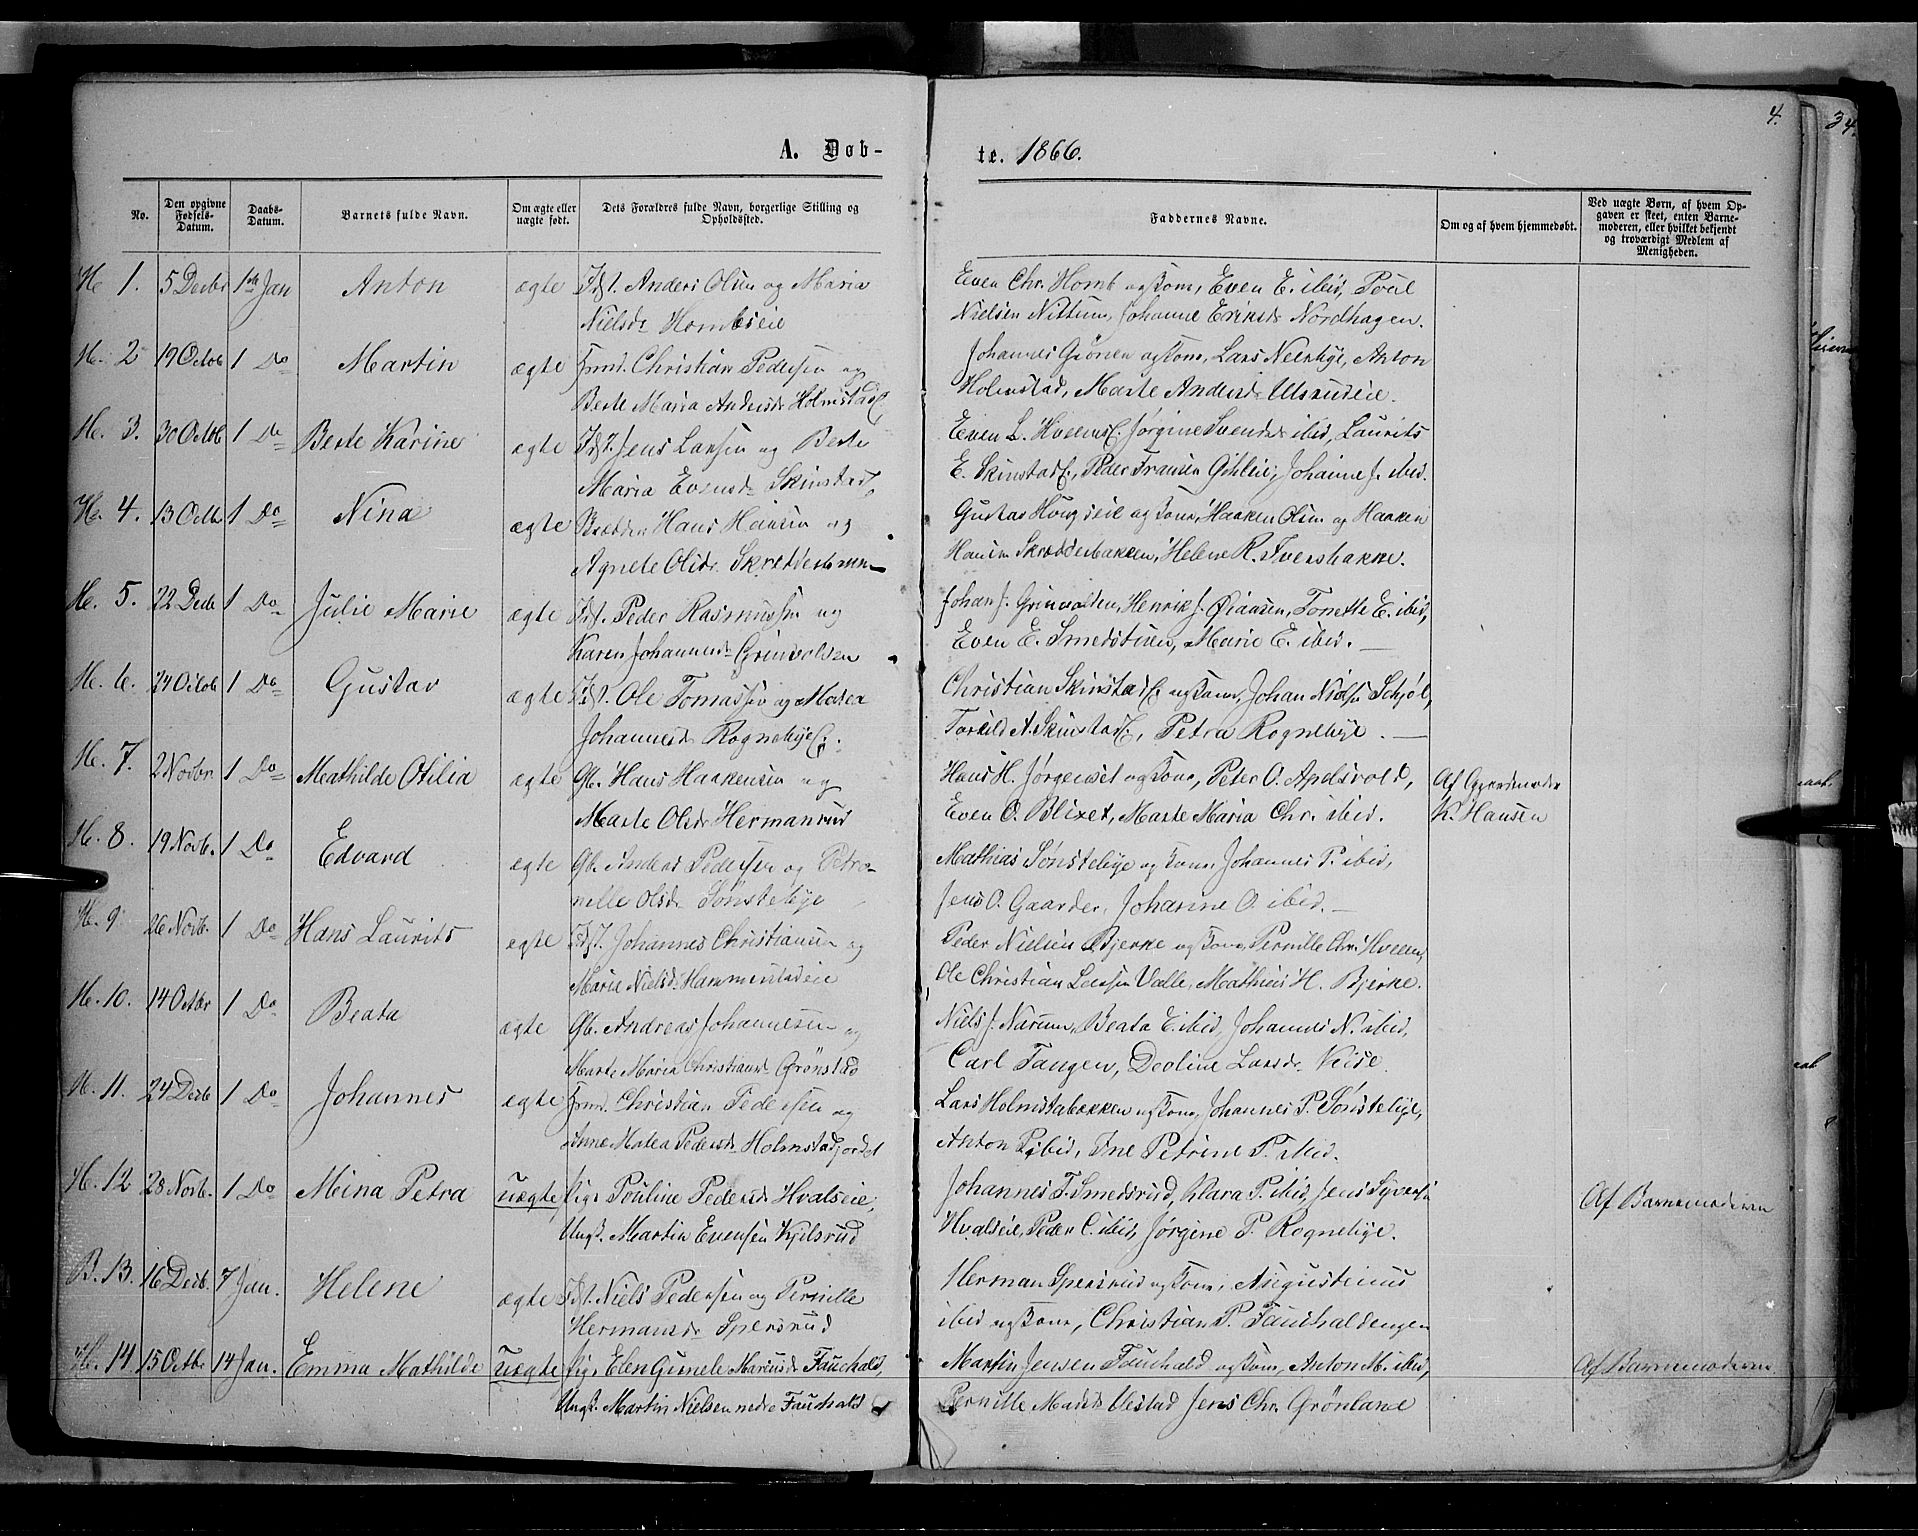 4.
34.
A. Døb-
te. 1866.
No.
Den opgivne Fødsels-Datum.
Daabs-Datum.
Barnets fulde Navn.
Om ægte eller uægte født.
Dets Forældres fulde Navn, borgerlige Stilling og Opholdssted.
Faddernes Navne.
Om og af hvem hjemmedøbt.
Ved uægte Børn, af hvem Opgaven er skeet, enten Barnemoderen, eller hvilket bekjendt og troværdigt Medlem af Menigheden.
H. 1. 5 Decbr 1ste Jan Anton ægte Inds. Anders Olsen og Maria
Nielsdr Hombseie
Even Chr. Homb og Kone, Even E. ibid, Poul
Nielsen Nittum, Johanne Eriksdr Nordhagen.
H. 2 19 Octob 1 Do Martin ægte Christian Pedersen og
Berte Maria Andersdr Holmstad
Johannes og Kone, Lars, Anton
Holmstad, Marte Andersdr
H. 3. 30 Octob 1 Do Berte Karine ægte Jens Larsen og Berte
Maria Evensdr Skinstad
Even L. Hveems, Jørgine Svendsdr ibid, Laurits
E. Skinstad, Peder Fransen, Johanne J. ibid.
H. 4. 13 Octbr 1 Do Nina ægte Hans Hansen og
Agnete Olsdr.
Gustav og Kone, Haaken Olsen og Haaken
Hansen Skrædderbakken, Helene R. Tverbakke.
H. 5. 22 Decb 1 Do Julie Marie ægte Peder Rasmussen og
Karen Johannesdr Grinvolden
Johan J. Grinvolden, Henrik J., Tonette E. ibid,
Even E. Smedstuen, Marie E. ibid.
H. 6. 24 Octob 1 Do Gustav ægte Ole Tomassen og Matea
Johannesdr Rognebye
Christian Skinstad og Kone, Johan Nielsen Schjøl,
Torkild A. Skinstad, Petra Rognebye.
H. 7. 2 Novbr 1 Do Mathilde Otilia ægte Gb. Hans Haakensen og
Marte Olsdr Hermanrud
Hans H. og Kone, Peter O. Apelsvold,
Even O. Blixet, Marte Maria Chr. ibid.
Af
K. Hansen
H. 8. 19 Novb. 1 Do Edvard ægte Gb. Anders Pedersen og Petro-
nelle Olsdr Sønstebye
Mathias Sønstebye og Kone, Johannes P. ibid,
Jens O. Gaarder, Johanne O. ibid.
H. 9 26 Novb. 1 Do Hans Laurits ægte Johannes Christiansen og
Marie Nielsdr Hammerstadeie
Peder Nielsen Bjerke og Kone, Pernille Chr. Hveem,
Ole Christian Larsen Valle, Mathias H. Bjerke.
H. 10. 14 Octbr 1 Do Beata ægte Gb. Andreas Johannesen og
Marte Maria Christiansdr Grønstad
Niels J. Narum, Beata E. ibid, Johannes N. ibid,
Carl Tangen, Deoline Larsdr.
H. 11. 24 Decb 1 Do Johannes ægte Christian Pedersen og
Anne Matea Pedersdr Holmstadjordet
Lars Holmstabakken og Kone, Johannes P. Sønstebye,
Anton P. ibid, Petrine P. ibid.
H. 12 28 Novb. 1 Do Meina Petra uægte Pige Pouline Pedersdr Hvalseie,
Ungk. Martin Evensen Kjelsrud
Johannes T. Smedsrud, Klara P. ibid, Jens Syversen
Hvalseie, Peder C. ibid, Jørgine P. Rognebye.
Af Barnemoderen
B. 13. 16 Decb. 7 Jan. Helene ægte Niels Pedersen og Pernille
Hermansdr Spersrud
Herman Spersrud og Kone, Augustinus
ibid og Kone, Christian P. Fauchaldengen
H. 14. 15 Octbr 14 Jan. Emma Mathilde uægte Pige Elen Gunele Mariusdr Fauchald,
Ungk. Martin Nielsen nedre Fauchald
Martin Jensen Fauchald og Kone, Anton M. ibid,
Pernille Madsdr Vestad Jens Chr. Grønland
Af Barnemoderen